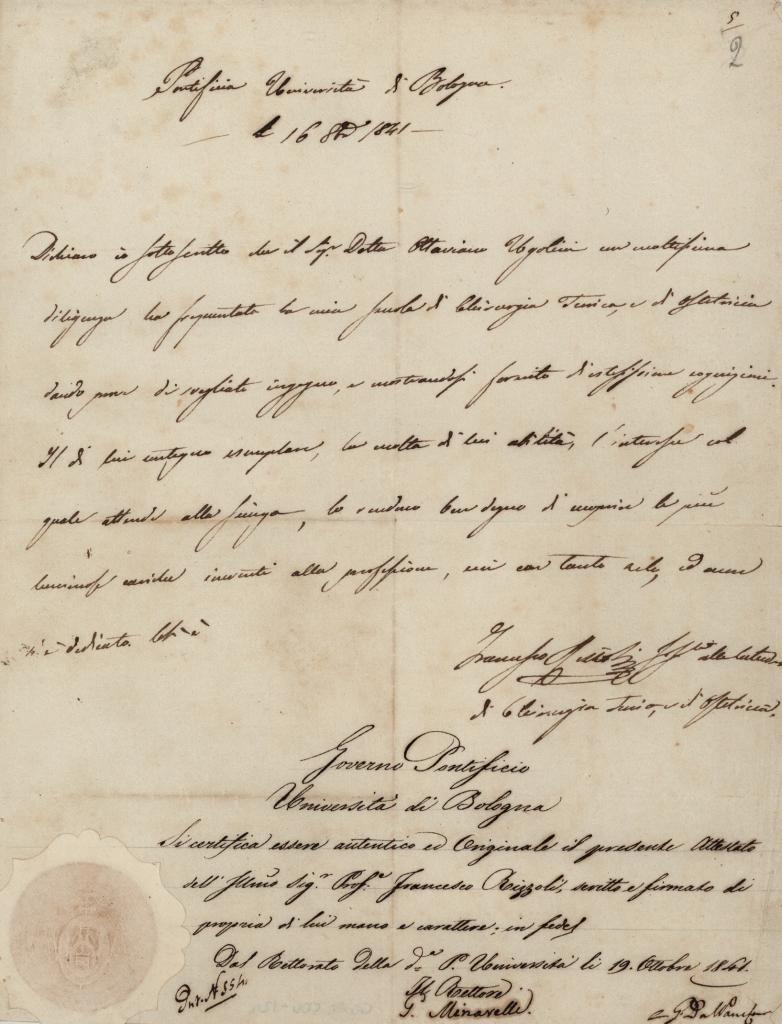 5
2
Pontificia Università di Bologna.
16 8bre 1841
Dichiaro io sottoscritto che il Sigr. Dottr Ottaviano Ugolini con moltissima
diligenza ha frequentato la mia scuola di Chirurgia Teorica, e di Ostetricia
dando prove di svegliato ingegno, e mostrandosi fornito di estesissime cognizioni.
Il di lui contegno esemplare, la molta di lui abilità, l'interesse col
quale attende alla Scienza, lo rendono ben degno di coprire le più
luminose cariche inerenti alla professione, cui con tanto zelo, ed amore
si è dedicato. Ch è
Francesco Rizzoli alla Cattedra
di Chirurgia Teorica, e di Ostetricia.
Governo Pontificio
Università di Bologna
Si certifica essere autentico ed Originale il presente Attestato
dell' Illmo Sigr. Profe. Francesco Rizzoli, scritto e firmato di
propria di lui mano e carattere; in fede
Dal Rettorato della da. P. Università li 19. Ottobre 1841.
Il Rettore
G. Minarelli.